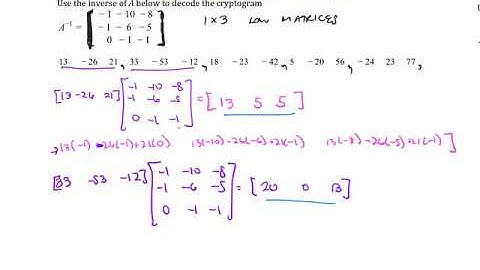 Use the inverse of A below to decode the cryptogram
1 x 3 ROW MATRICES
A⁻¹ = [ -1 -10 -8
-1 -6 -5
0 -1 -1 ]
13 -26 21, 33 -53 -12, 18 -23 -42, 5 -20 56, -24 23 77,
[13 -26 21] [ -1 -10 -8
-1 -6 -5
0 -1 -1 ] = [ 13 5 5 ]
13(-1) -26(-1)+21(0) 13(-10)-26(-6)+21(-1) 13(-8)-26(-5)+21(-1) ]
[33 -53 -12] [ -1 -10 -8
-1 -6 -5
0 -1 -1 ] = [ 20 0 13 ]